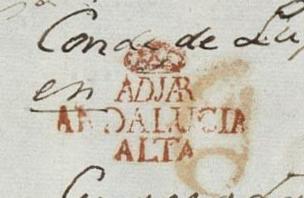 Conde de Lu
en
ADJAR
ANDALUCIA
ALTA